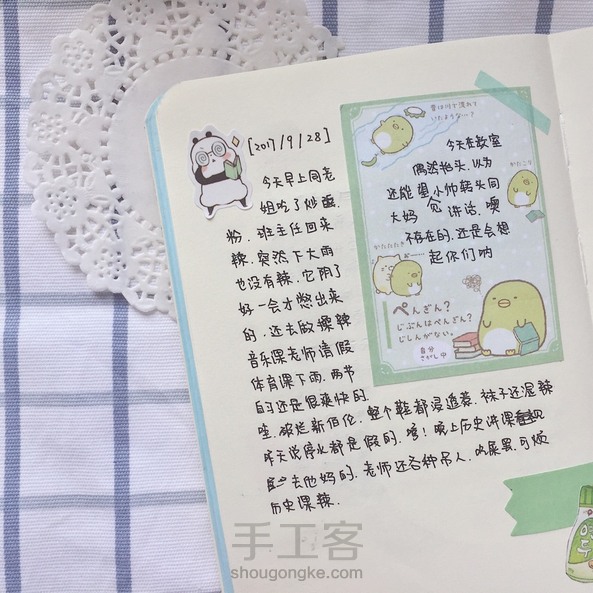 [2017/9/28]
今天早上同老
姐吃了炒面.
粉. 班主任回来
辣. 突然下大雨
也没有辣. 它阴了
好一会才憋出来
的. 还去做操辣
音乐课老师请假
体育课下雨. 两节
自的还是很爽快的
哇. 破烂新佰伦. 整个鞋都浸透惹. 袜子还湿辣
昨天说停水都是假的. 嗐! 晚上历史讲课
去他妈的. 老师还各种吊人. 吃屎罢. 可烦
历史课辣.
昔は川で流れて
いたような…?
今天在教室
偶然抬头. 以为
还能望小帅转头同
大妈 讲话. 噢
不存在的. 还是会想
起你们呐
かたこり
かたたたき
ぺんぎん?
じぶんはぺんぎん?
じしんがない。
自分
さがし中
手工客
shougongke.com